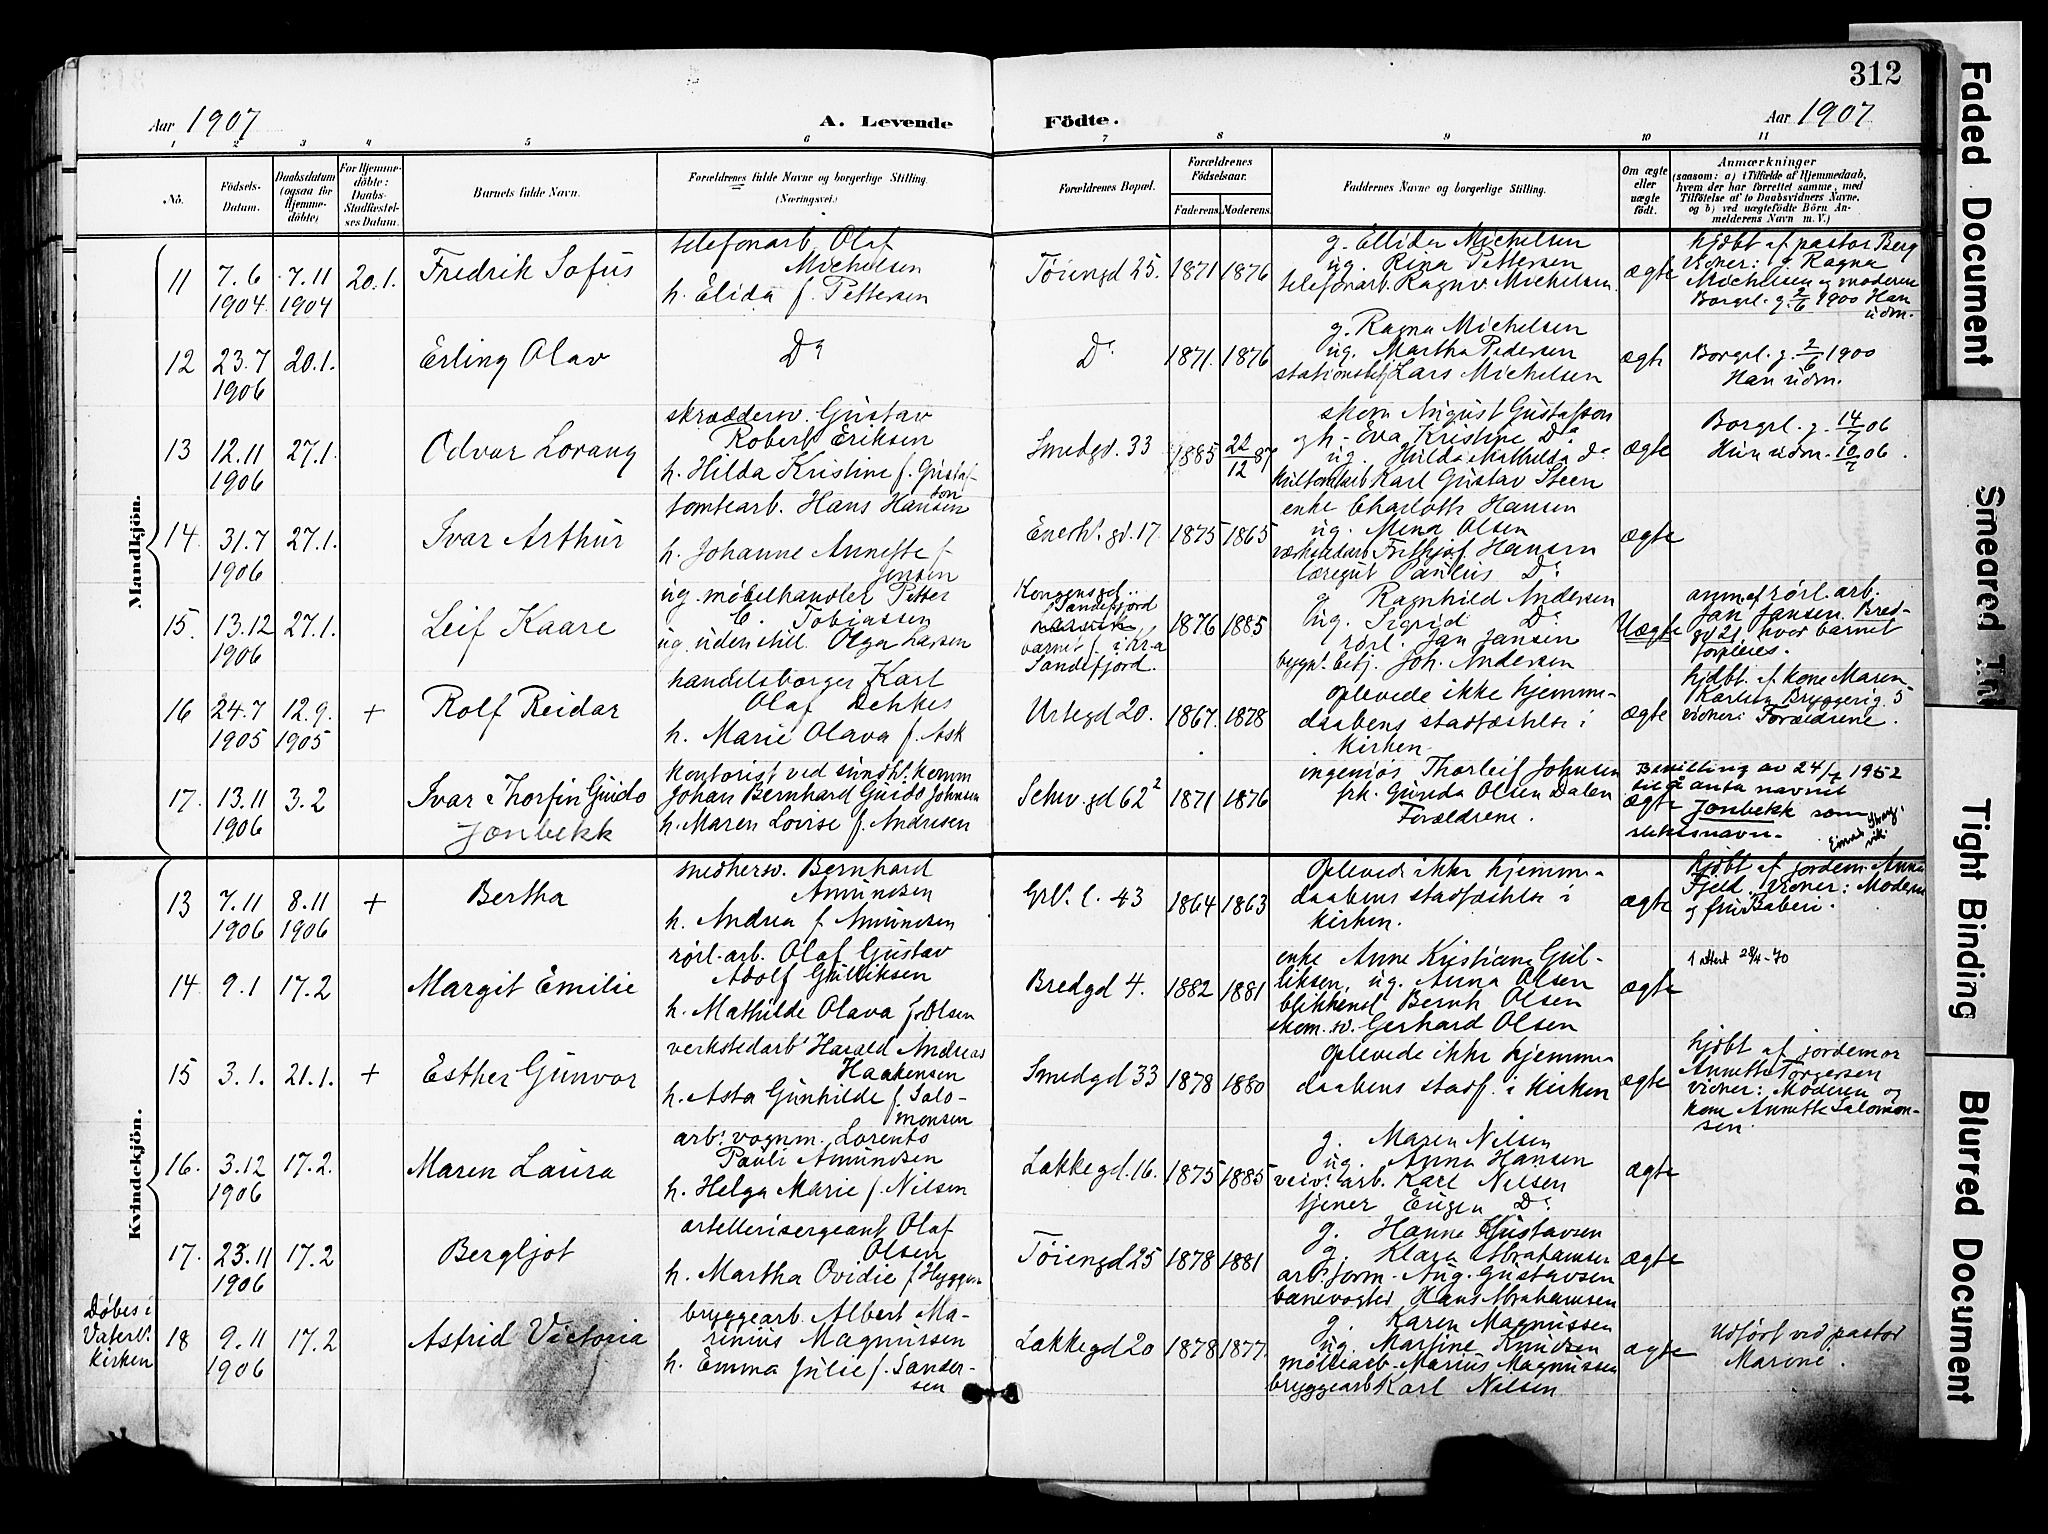 312
Aar 1907
A. Levende
Födte.
Aar 1907
1 2 3 4 5 6 7 8 9 10 11
No.
Födsels-Datum.
Daabsdatum (ogsaa for Hjemme-döbte)
For Hjemme-döbte: Daabs-Stadfæstel-ses Datum.
Barnets fulde Navn.
Forældrenes fulde Navne og borgerlige Stilling. (Næringsvei.)
Forældrenes Bopæl.
Forældrenes Födselsaar.
Faderens. Moderens.
Faddernes Navne og borgerlige Stilling.
Om ægte eller uægte födt.
Anmærkninger
(saasom: a) i Tilfælde af Hjemmedaab,
hvem der har forrettet samme, med
Tilföielse af to Daabsvidners Navne,
og b) ved uægtefödte Börn An-
melderens Navn m. V.)
Mandkjön.
11 7.6 1904 7.11 1904 20.1. Fredrik Sofus
telefonarb. Olaf
Michelsen
h. Elida f. Pettersen
Töiengd 25. 1871 1876
g. Ellida Michelsen
ug. Rina Pettersen
telefonarb. Ragnv. Michelsen
ægte
hjdbt af pastor Berg
vidner: g. Ragna
Michelsen og moderen
Borgrl. g. 2/6 1900 Han
udm.
12 23.7 1906 20.1. Erling Olav
Do
Do 1871. 1876
g. Ragna Michelsen
ug. Martha Pedersen
stationsbetj Lars Michelsen
ægte
Borgrl. g. 2/6 1900
Han udm.
13 12.11 1906 27.1. Odvar Lorang
skræddersv. Gustav
Robert Eriksen
h. Hilda Kristine f. Gustaf-
son
Smedgd. 33 1885 22/12 87
skom August Gustafsson
og h. Eva Kristine Do
ug. Hulda Mathilda Do
Karl Gustav Steen
ægte
Borgrl. g. 14/7 06
Hun udm. 10/7 06.
14. 31.7 1906 27.1. Ivar Arthur
tomtearb. Hans Hansen
h. Johanne Annette f.
Jensen
Enerh. gd. 17 1875 1865
enke Charlotte Hansen
ug. Mena Olsen
Frithjof Hansen
læregut Paulus Do
ægte
15. 13.12 1906 27.1. Leif Kaare
ug. möbelhandler Petter
C. Tobiassen
ug. uden still. Olga Larsen
Kongensgd
Sandefjord
barnet f. i Kr.a
Sandefjord.
1876 1885
g. Ragnhild Andersen
ug. Sigrid Do
rörl. Jan Jansen
bygn. betj. Joh. Andersen
Uægte
anm. af rörl. arb.
Jan Jansen. Bred-
gd 21 hvor barnet
forpleies.
16 24.7 1905 12.9. 1905 + Rolf Reidar
handelsborger Karl
Olaf Dehkes
h. Marie Olava f. Ask
Urtegd 20. 1867. 1878
oplevede ikke hjemme-
daabens stadfæstelse i
kirken.
ægte
hjdbt. af kone Maren
Karlsen Bryggerig. 5
vidner: Forældrene.
17. 13.11 1906 3.2 Ivar Thorfin Guido
Jonbekk
kontorist ved sundh. komm
Johan Bernhard Guido Johnsen
h. Maren Lovise f. Andresen
Schv. gd 62² 1871 1876
ingeniör Thorleif Johnsen
frk. Gunda Olsen Dalen
Forældrene.
Bevilling av 24/7 1952
til å anta navnet
ægte Jonbekk som
slektsnavn.
Kvindekjön.
13 7.11 1906 8.11 1906 + Bertha
smedhersv. Bernhard
Amundsen
h. Andrea f. Amundsen
Grl. l. 43 1864 1863
oplevede ikke hjemme-
daabens stadfæstelse i
kirken.
ægte
hjdbt af jordem. Anna
Fjeld. vidner: Moderen
og fru Baberi.
14. 9.1 17.2 Margit Emilie
rörl. arb. Olaf Gustav
Adolf Gulliksen
h. Mathilde Olava f. Olsen
Bredgd 4. 1882 1881
enke Anne Kristiane Gul-
liksen, ug. Anna Olsen
blikkensl Bernh Olsen
skom. sv. Gerhard Olsen
ægte
1 attest 28/4-70
15 3.1. 21.1. + Esther Gunvor
verkstedarb Harald Andreas
Haakensen
h. Asta Gunhilde f. Salo-
monsen
Smedgd 33 1878 1880
oplevede ikke hjemme-
daabens stadf. i kirken
ægte
hjdbt af jordemor
Annette Torgersen
vidner: Moderen og
kone Annette Salomon-
sen.
16. 3.12 1906 17.2. Maren Laura
arb. vognm. Lorents
Pauli Amundsen
h. Helga Marie f. Nilsen
Lakkegd. 16. 1875 1885
g. Maren Nilsen
ug. Anna Hansen
veiv. arb. Karl Nilsen
tjener Eugen Do
ægte
17. 23.11 1906 17.2 Bergljot
artellerisergeant Olaf
Olsen
h. Martha Ovidie f. Hyggen
Töiengd 25 1878 1881
g. Hanna Gustavsen
g. Klara Abrahamsen
arb. form. Aug. Gustavsen
banevogter Hans Abrahamsen
ægte
Döbes i
Vaterl.
kirken
18 9.11 1906 17.2 Astrid Victoria
bryggearb. Albert Ma-
rinius Magnussen
h. Emma Julie f. Sander-
sen
Lakkegd 20 1878 1877.
g. Karen Magnussen
ug. Martine Knudsen
möllearb. Marius Magnussen
bryggearb Karl Nilsen
ægte
Udfört ved pastor
Marine.
Faded Document
Smeared
Tight Binding
Blurred Document